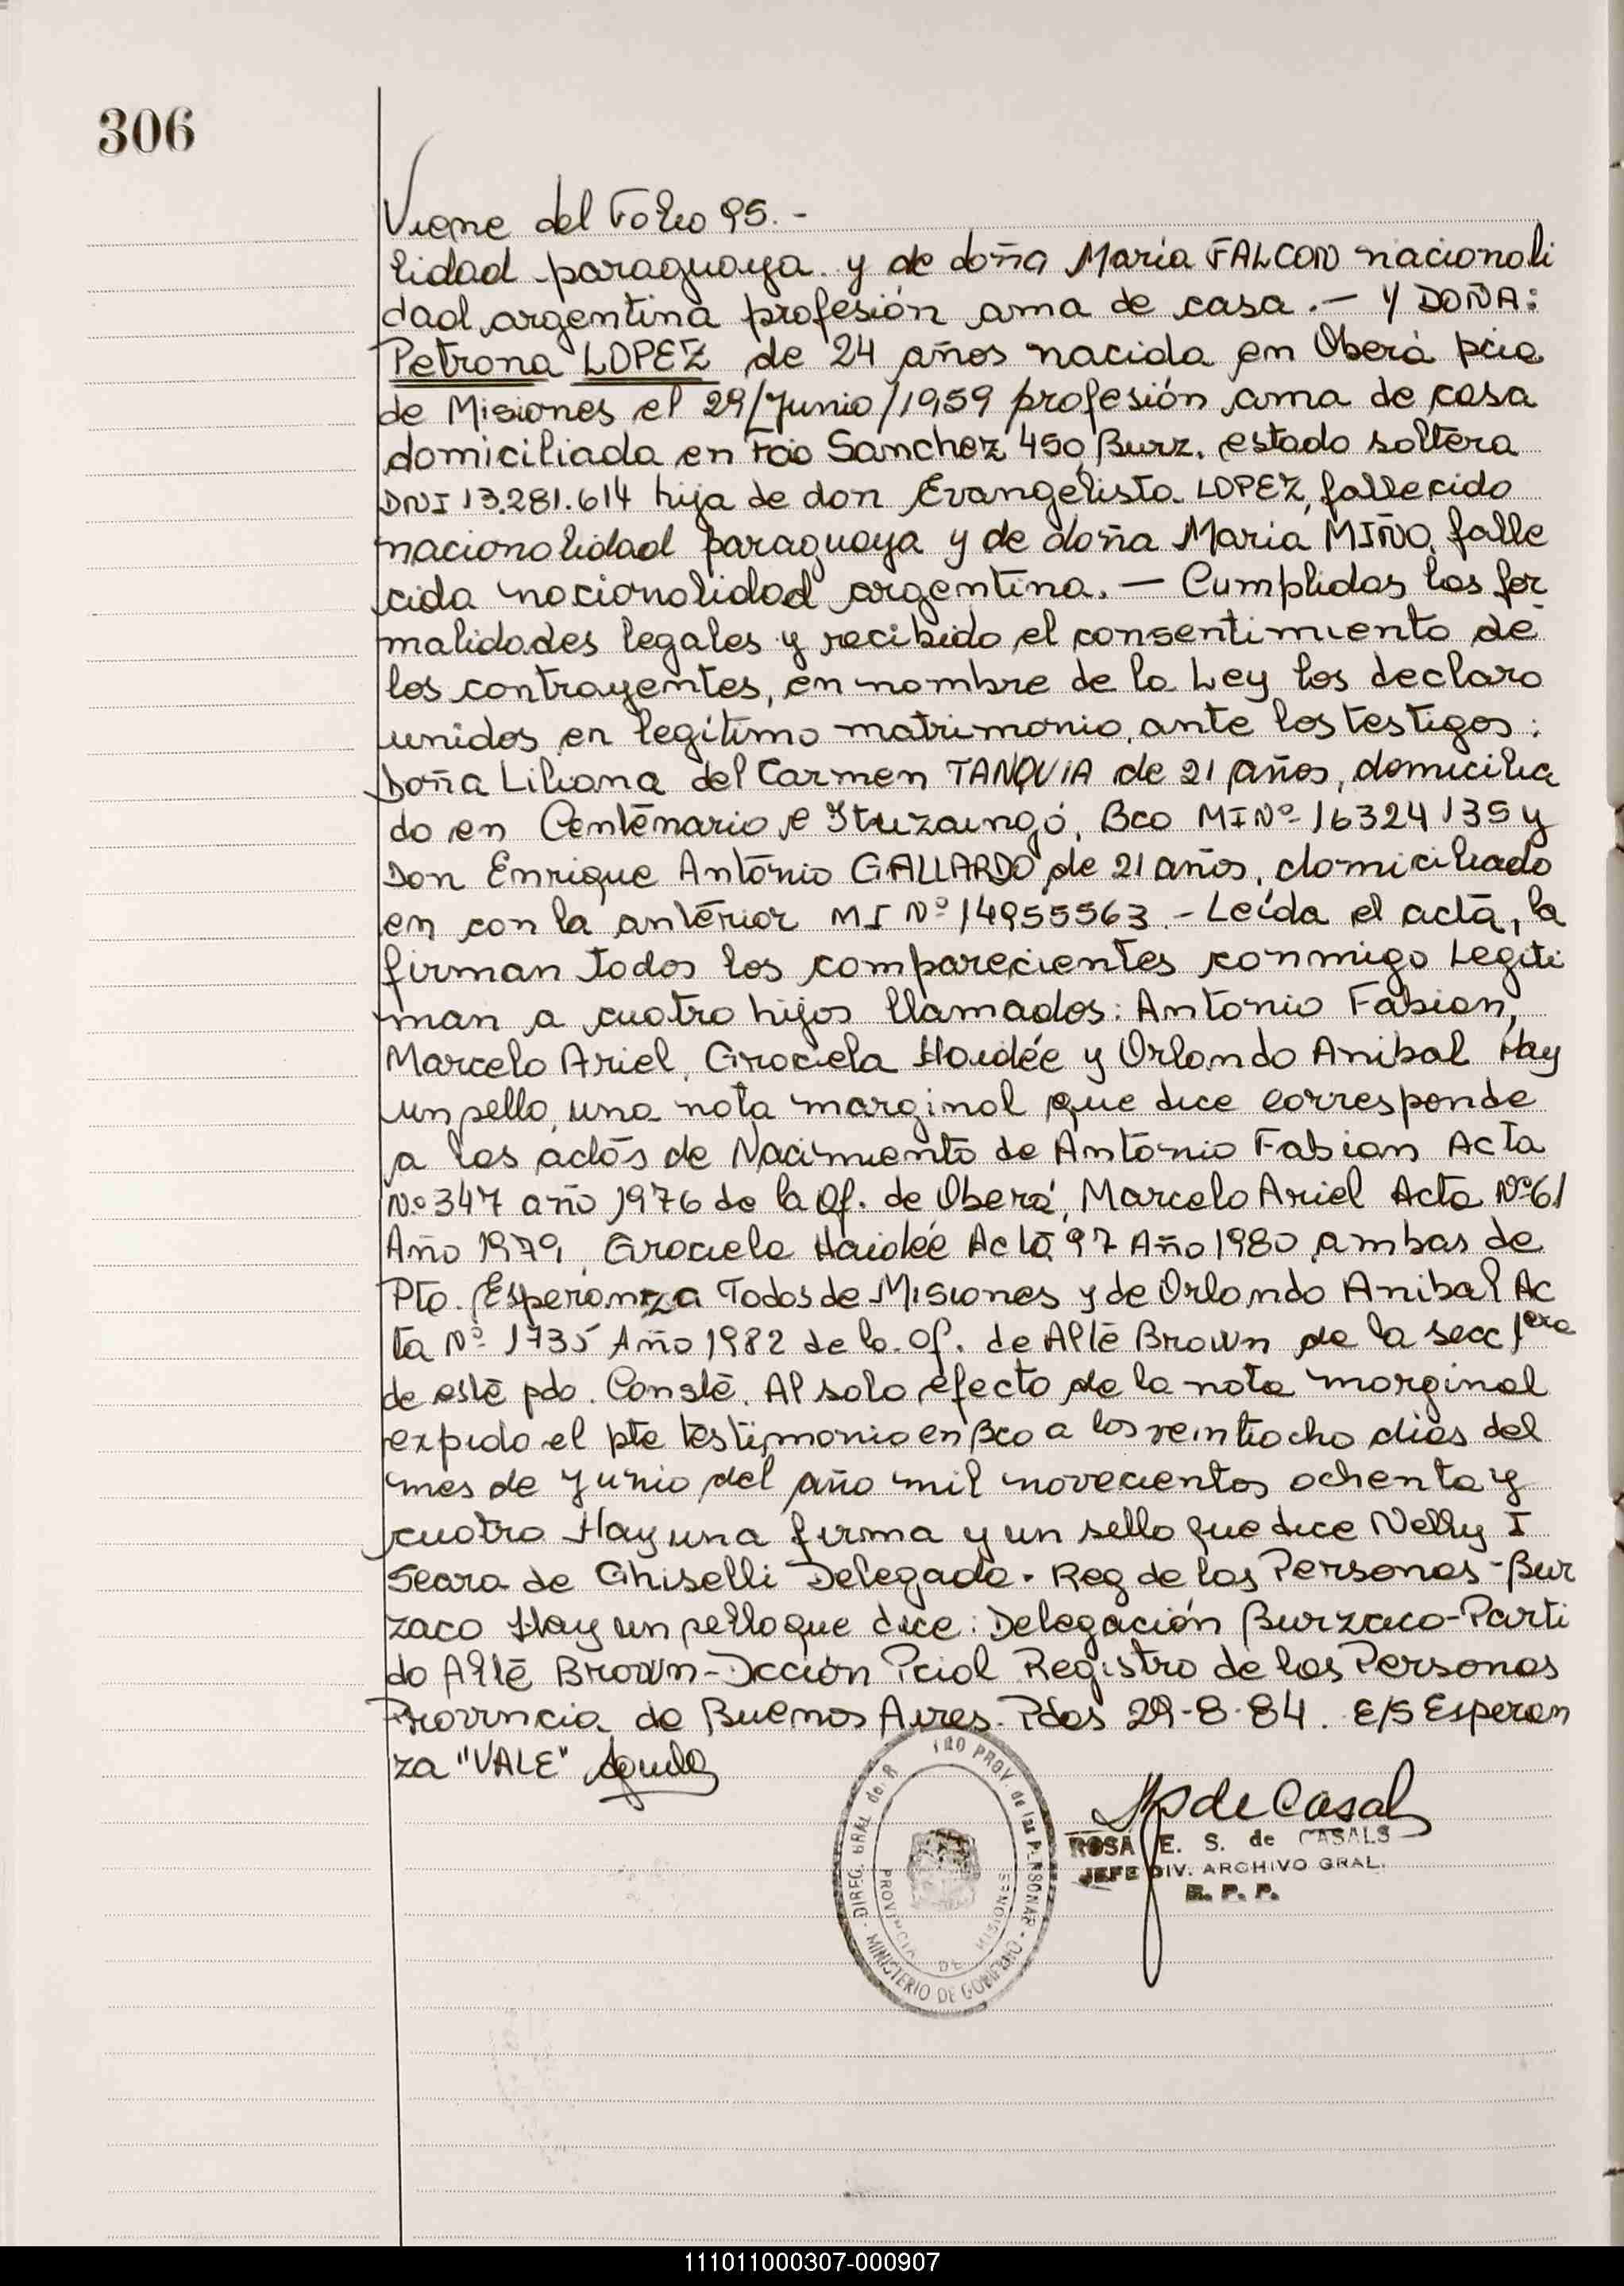 306
Viene del Folio 95.-
lidad paraguaya. y de doña Maria FALCON nacionali
dad argentina profesión ama de casa.- Y DOÑA:
Petrona LOPEZ de 24 años nacida en Oberá pcia
de Misiones el 29/Junio/1959 profesión ama de casa
domiciliada en Fco Sanchez 450 Burz. estado soltera
DNI 13.281.614 hija de don Evangelista LOPEZ, fallecido
nacionalidad paraguaya y de doña Maria MIÑO, falle
cida nacionalidad argentina.- Cumplidas las for
malidades legales y recibido el consentimiento de
los contrayentes, en nombre de la Ley los declaro
unidos en legítimo matrimonio, ante los testigos:
Doña Liliana del Carmen TANQUIA de 21 años, domicilia
do en Centenario e Ituzaingó, Bco MI Nº 16324139 y
Don Enrique Antonio GALLARDO de 21 años, domiciliado
en con la anterior MI Nº 14955563.- Leída el acta, la
firman todos los comparecientes conmigo Legiti
man a cuatro hijos llamados: Antonio Fabian,
Marcelo Ariel, Graciela Haidée y Orlando Anibal Hay
un sello, una nota marginal que dice corresponde
a las actas de Nacimiento de Antonio Fabian Acta
Nº 347 año 1976 de la Of. de Oberá, Marcelo Ariel Acta Nº 61
Año 1979, Graciela Haidée Acta 97 Año 1980 ambas de
Pto. Esperanza Todos de Misiones y de Orlando Anibal Ac
ta Nº 1735 Año 1982 de la Of. de Alte Brown de la secc 1era
de este pdo. Conste. Al solo efecto de la nota marginal
expido el pte testimonio en Bco a los veintiocho dias del
mes de Junio del año mil novecientos ochenta y
cuatro Hay una firma y un sello que dice Nelly I
Seara de Ghiselli Delegada. Reg de las Personas-Bur
zaco Hay un sello que dice: Delegación Burzaco-Parti
do Alte Brown-Dcción Pcial Registro de las Personas
Provincia de Buenos Aires. Pdas 29-8-84. E/S Esperan
za "VALE"
DIREG. GRAL de R PROV. de las PERSONAS - MINISTERIO DE GOBIERNO -
PROVINCIA DE MISIONES
de Casals
ROSA E. S. de CASALS
JEFE DIV. ARCHIVO GRAL.
R. P. P.
111011000307-000907